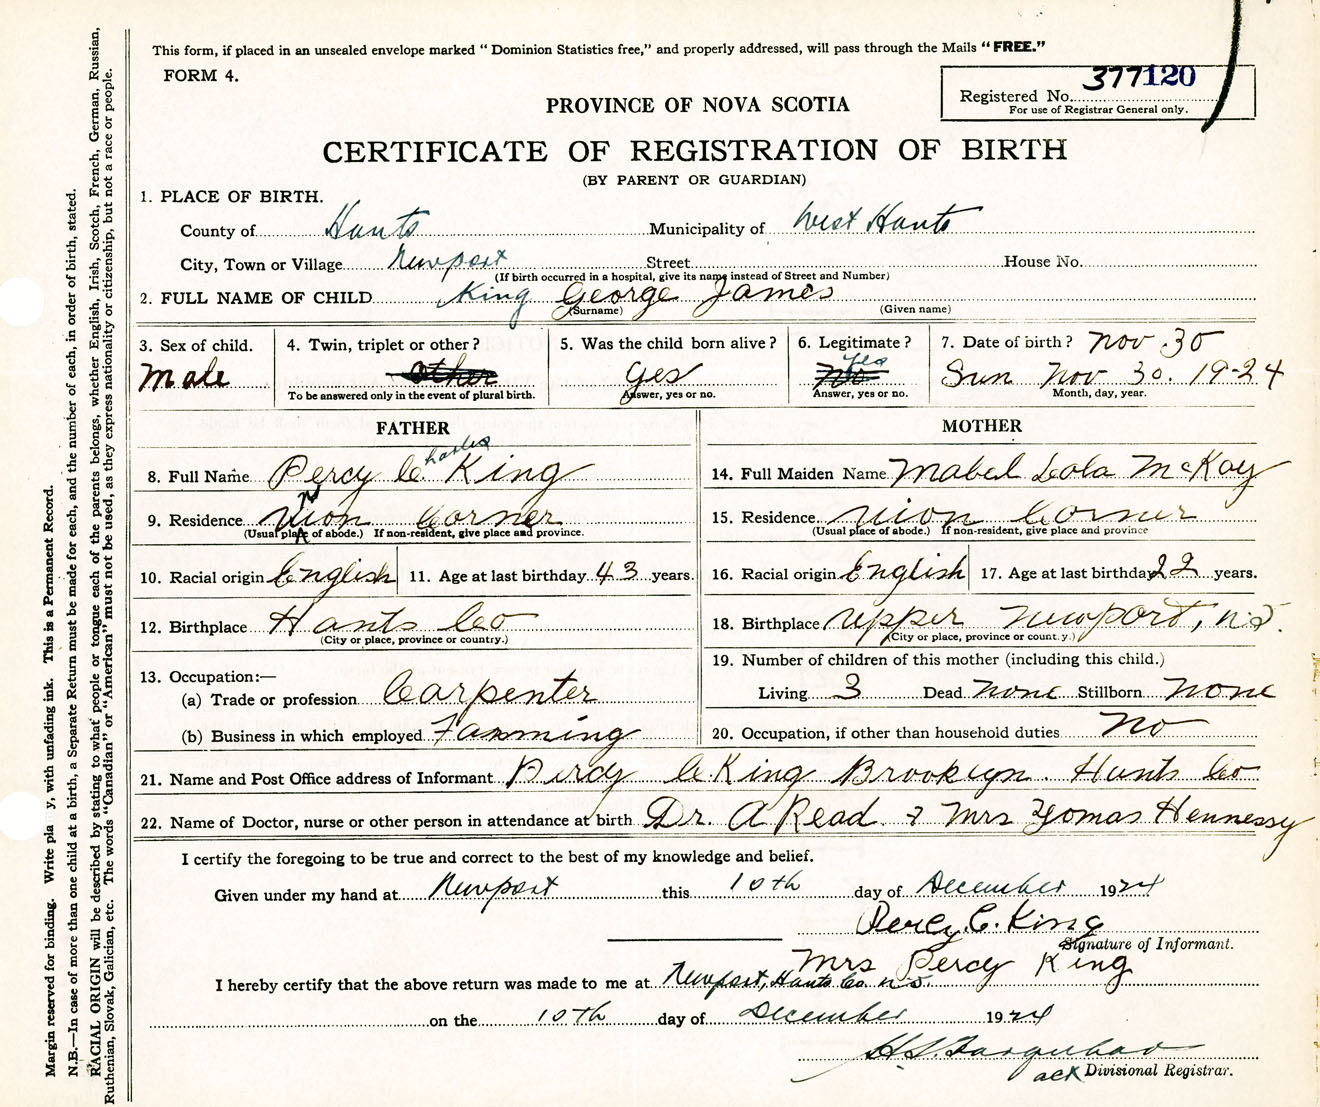 This form, if placed in an unsealed envelope marked " Dominion Statistics free," and properly addressed, will pass through the Mails " FREE."
FORM 4.
Registered No. 377120
For use of Registrar General only.
PROVINCE OF NOVA SCOTIA
CERTIFICATE OF REGISTRATION OF BIRTH
(BY PARENT OR GUARDIAN)
1. PLACE OF BIRTH.
County of Hants Municipality of West Hants
City, Town or Village Newport Street House No.
(If birth occurred in a hospital, give its name instead of Street and Number)
2. FULL NAME OF CHILD King George James
(Surname) (Given name)
3. Sex of child. 4. Twin, triplet or other ? 5. Was the child born alive ? 6. Legitimate ? 7. Date of birth ? Nov 30
Male other yes No yes Sun Nov 30. 19-24
To be answered only in the event of plural birth. Answer, yes or no. Answer, yes or no. Month, day, year.
FATHER
8. Full Name Percy C harles King
9. Residence Union Corner
(Usual place of abode.) If non-resident, give place and province.
10. Racial origin English 11. Age at last birthday 43 years.
12. Birthplace Hants Co
(City or place, province or country.)
13. Occupation:—
(a) Trade or profession Carpenter
(b) Business in which employed Farming
MOTHER
14. Full Maiden Name Mabel Lola McKay
15. Residence Union Corner
(Usual place of abode.) If non-resident, give place and province
16. Racial origin English 17. Age at last birthday 22 years.
18. Birthplace Upper Newport, N.S.
(City or place, province or country.)
19. Number of children of this mother (including this child.)
Living 3 Dead none Stillborn none
20. Occupation, if other than household duties No
21. Name and Post Office address of Informant Percy C. King Brooklyn. Hants Co
22. Name of Doctor, nurse or other person in attendance at birth Dr. A Read & Mrs Yomas Hennessy
I certify the foregoing to be true and correct to the best of my knowledge and belief.
Given under my hand at Newport this 10th day of December 1924
Percy. C. King
Signature of Informant.
Mrs Percy King
I hereby certify that the above return was made to me at Newport, Hants Co. N.S.
on the 10th day of December 1924
H. S. Farquhar
act Divisional Registrar.
Margin reserved for binding. Write pla y, with unfading ink. This is a Permanent Record.
N.B.—In case of more than one child at a birth, a Separate Return must be made for each, and the number of each, in order of birth, stated.
RACIAL ORIGIN will be described by stating to what people or tongue each of the parents belongs, whether English, Irish, Scotch, French, German, Russian,
Ruthenian, Slovak, Galician, etc. The words "Canadian" or "American" must not be used, as they express nationality or citizenship, but not a race or people.